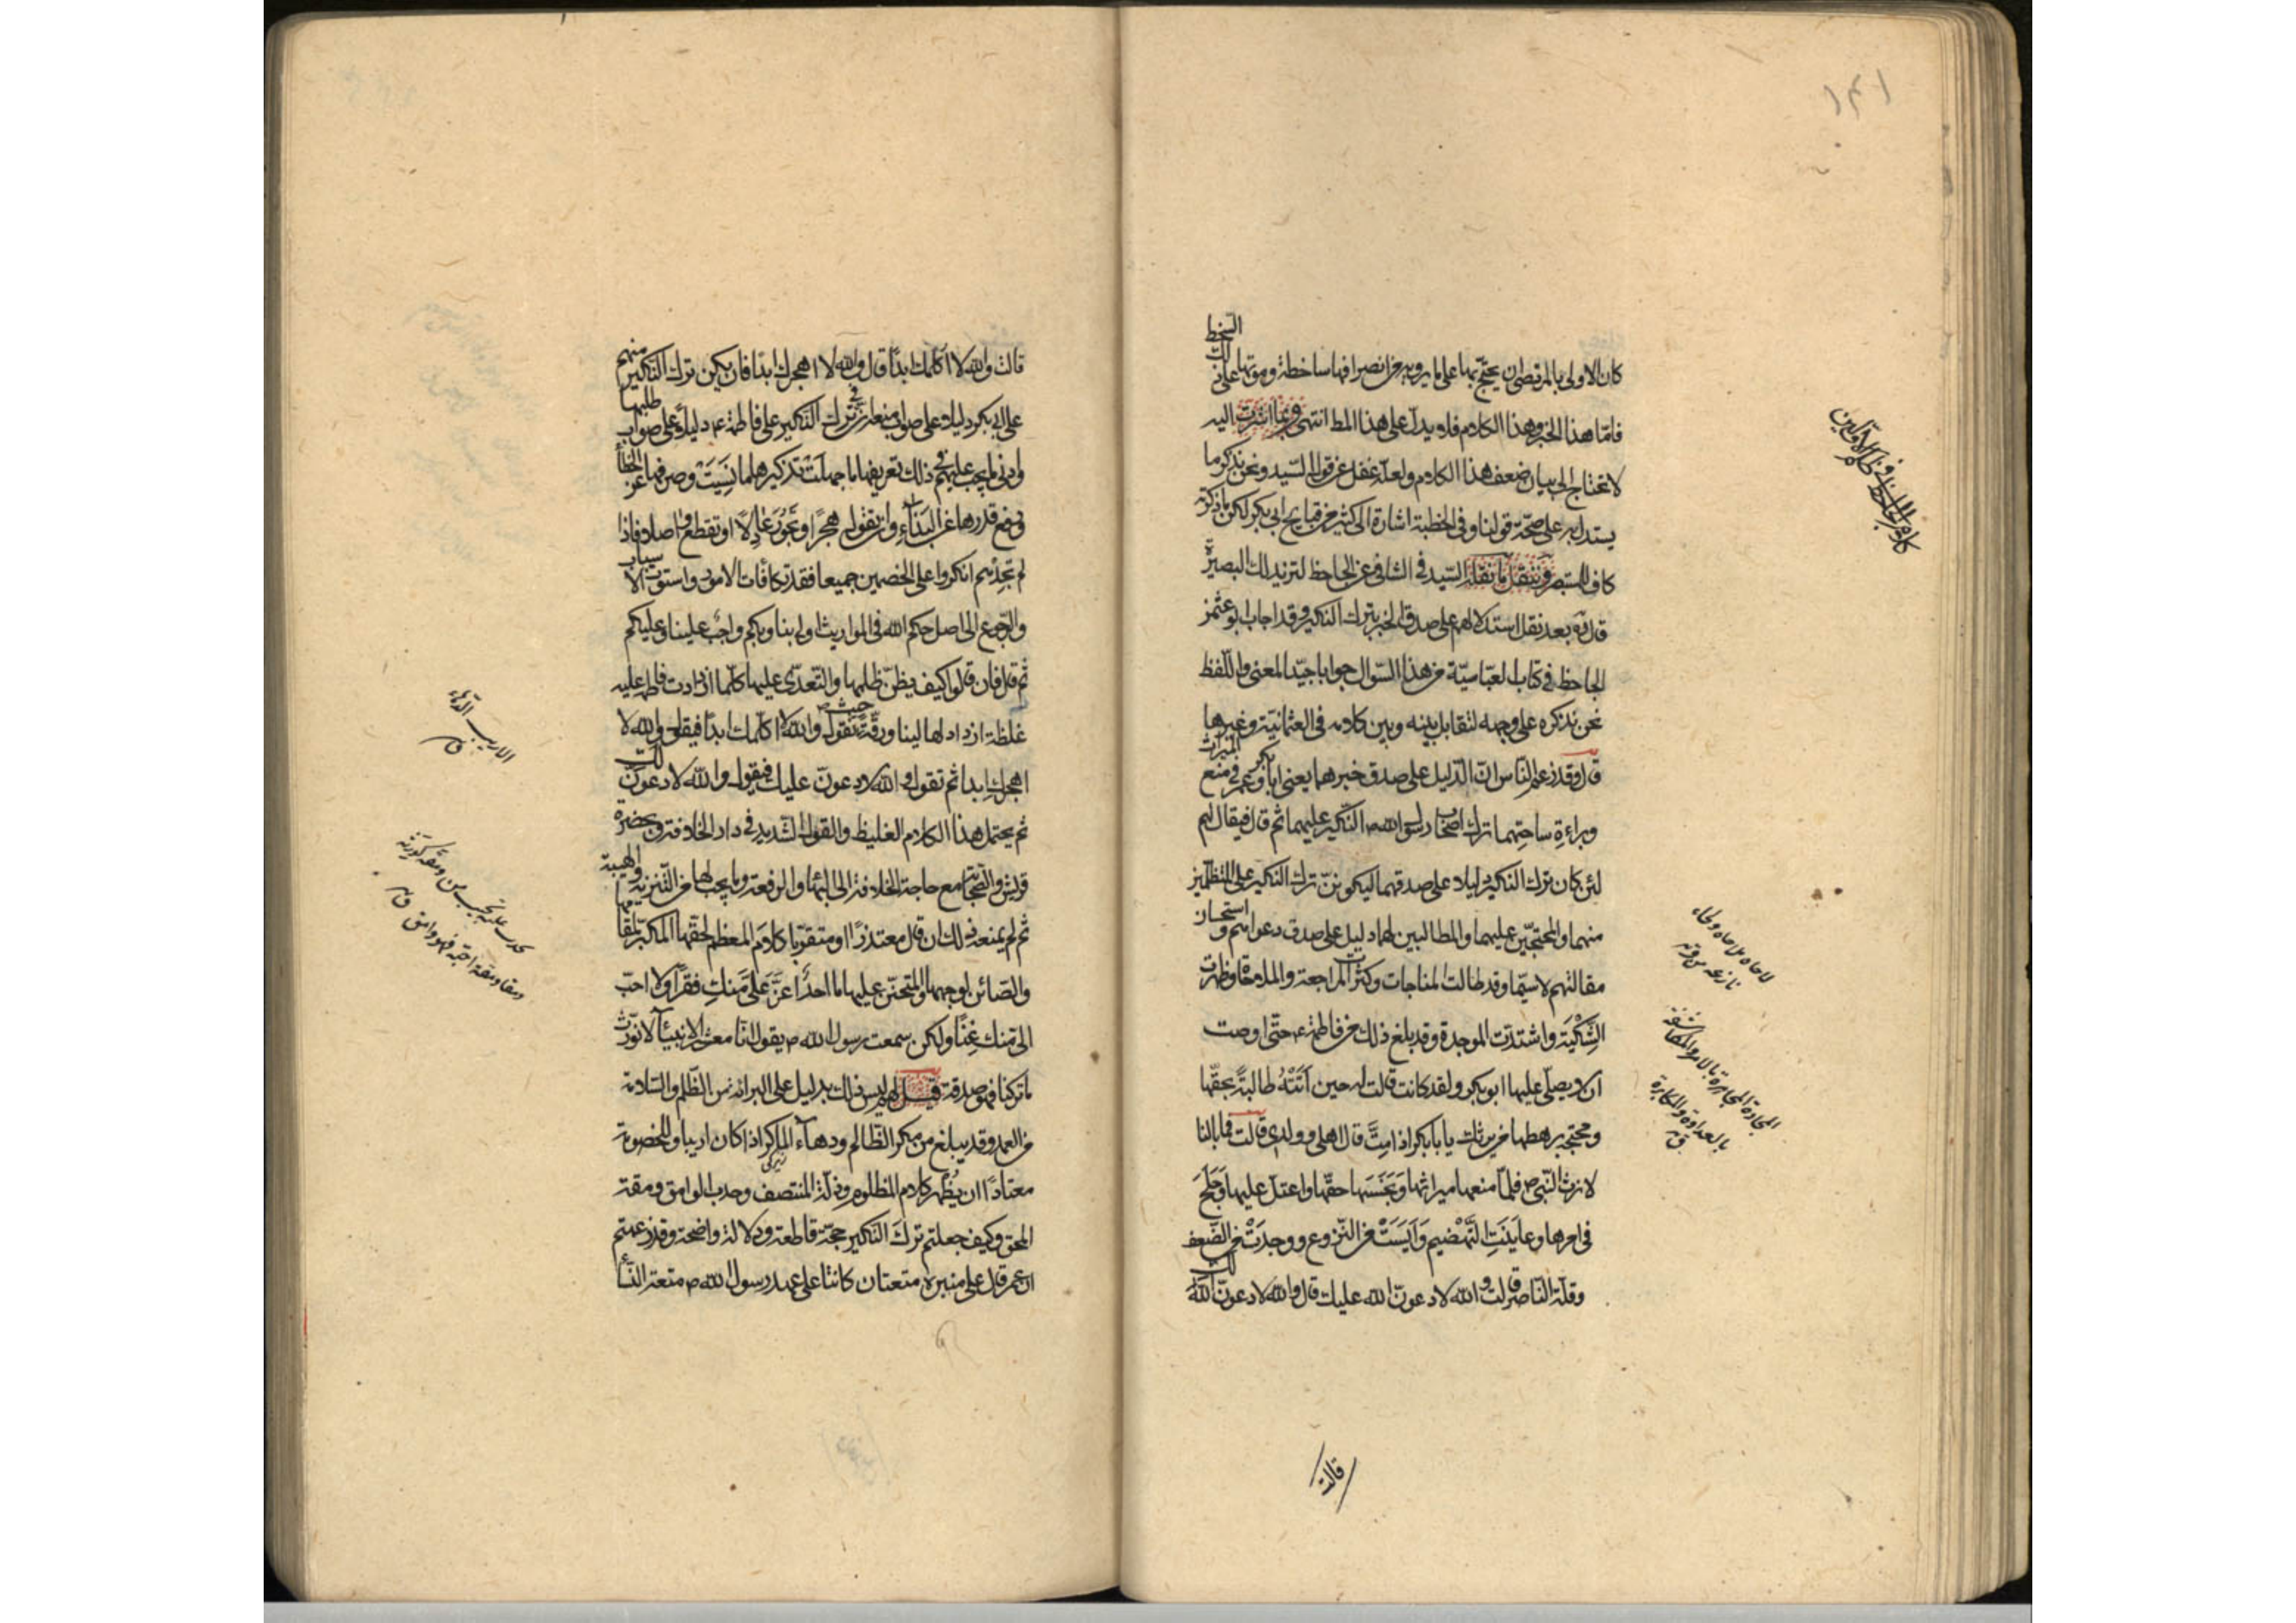 ١٣١
كان الاولى بالمرتضى ان يحتج بها على ما يرويه من انصرافها ساخطة وموتها على ذلك السخط
فاما هذا الخبر وهذا الكلام فلا يدل على هذا المط انتهى وربما اشرت اليه
لا تحتاج الى بيان ضعف هذا الكلام ولعله غفل عن قول السيد ونحن نذكر ما
يستدل به على صحة قولنا وفى الخطبة اشارة الى كثير من قبايح ابى بكر لكن ما ذكرته
كاف للمستبصر وننقل ما نقله السيد فى الشافى عن الجاحظ لتزيد لك البصيرة
قال ره بعد نقل استدلالهم على صدق الخبر بترك النكير وقد اجاب ابو عثمن
الجاحظ فى كتاب العباسية من هذا السؤال جوابا جيد المعنى واللفظ
نحن نذكره على وجهه لتقابل بينه وبين كلامه فى العثمانية وغيرها
قال وقد زعم الناس ان الدليل على صدق خبرهما يعنى ابا بكر وعمر فى منع الميراث
وبراءة ساحتهما ترك اصحاب رسول الله ص النكير عليهما ثم قال فيقال لهم
لئن كان ترك النكير دليلا على صدقهما ليكونن ترك النكير على المتظلمين
منهما والمحتجين عليهما والمطالبين لهما دليل على صدق دعواهم واستحسان
مقالتهم لا سيما وقد طالت المناجات وكثرت المراجعة والملاحاة وظهرت
الشكية واشتدت الموجدة وقد بلغ ذلك من فاطمة ع حتى اوصت
ان لا يصلى عليها ابو بكر ولقد كانت قالت له حين اتته طالبة بحقها
ومحتجة برهطها من يرثك يا با بكر اذا مت قال اهلى وولدى قالت فما بالنا
لا نرث النبى ص فلما منعها ميراثها وبخسها حقها واعتل عليها وجلح
فى امرها وعاينت التهضيم وايست من النزوع ووجدت من الضعف
وقلة الناصر قالت والله لادعون الله عليك قال والله لادعون الله لك
قالت
كلام الجاحظ فى ظلم الاولين
لاحاه ملاحاه ولحاء
نازعه ق
المجادة المجاهرة بالامر والمكاشفة
بالعداوة والمكابرة
ق
قالت والله لا اكلمك ابدا قال والله لا اهجرك ابدا فان يكن ترك النكير منهم
على ابى بكر دليلا على صواب منعه ان فى ترك النكير على فاطمة ع دليلا على صواب طلبها
وادنى ما يجب عليهم فى ذلك تعريفها ما جهلت وتذكيرها ما نسيت وصرفها عن الخطأ
ورفع قدرها عن البذاء وان تقول هجرا وتجور عادلا او تقطع واصلا فاذا
لم تجدهم انكروا على الخصمين جميعا فقد تكافأت الامور واستوت الاسباب
والرجوع الى اصل حكم الله فى المواريث اولى بنا وبكم واجب علينا وعليكم
ثم قال فان قالوا كيف يظن ظلمها والتعدى عليها كلما ازدادت فاطمة عليه
غلظة ازداد لها لينا ورقة حيث تقول والله لا اكلمك ابدا فيقول والله لا
اهجرك ابدا ثم تقول والله لادعون عليك فيقول والله لادعون لك
ثم يحتمل هذا الكلام الغليظ والقول الشديد فى دار الخلافة وبحضرة
قريش والصحابة مع حاجة الخلافة الى البهاء والرفعة وما يجب لها من التنزيه والهيبة
ثم لم يمنعه ذلك ان قال معتذرا او متقربا كلام المعظم لحقها المكبر لمقامها
والصائن لوجهها والمتحنن عليها ما احد اعز على منك فقرا ولا احب
الى منك غنا ولكن سمعت رسول الله ص يقول انا معشر الانبياء لا نورث
ما تركنا فهو صدقة قيل لهم ليس ذلك بدليل على البرائة من الظلم والسلامة
من العمد وقد يبلغ من مكر الظالم ودهاء الماكر اذا كان اريبا وللخصومة
معتادا ان يظهر كلام المظلوم وذلة المنتصف وحدب الوامق ومقة
المحق وكيف جعلتم ترك النكير حجة قاطعة ودلالة واضحة وقد زعمتم
ان عمر قال على منبره متعتان كانتا على عهد رسول الله ص متعة النسا
ق
ومقا ومقة احبه فهو وامق ق